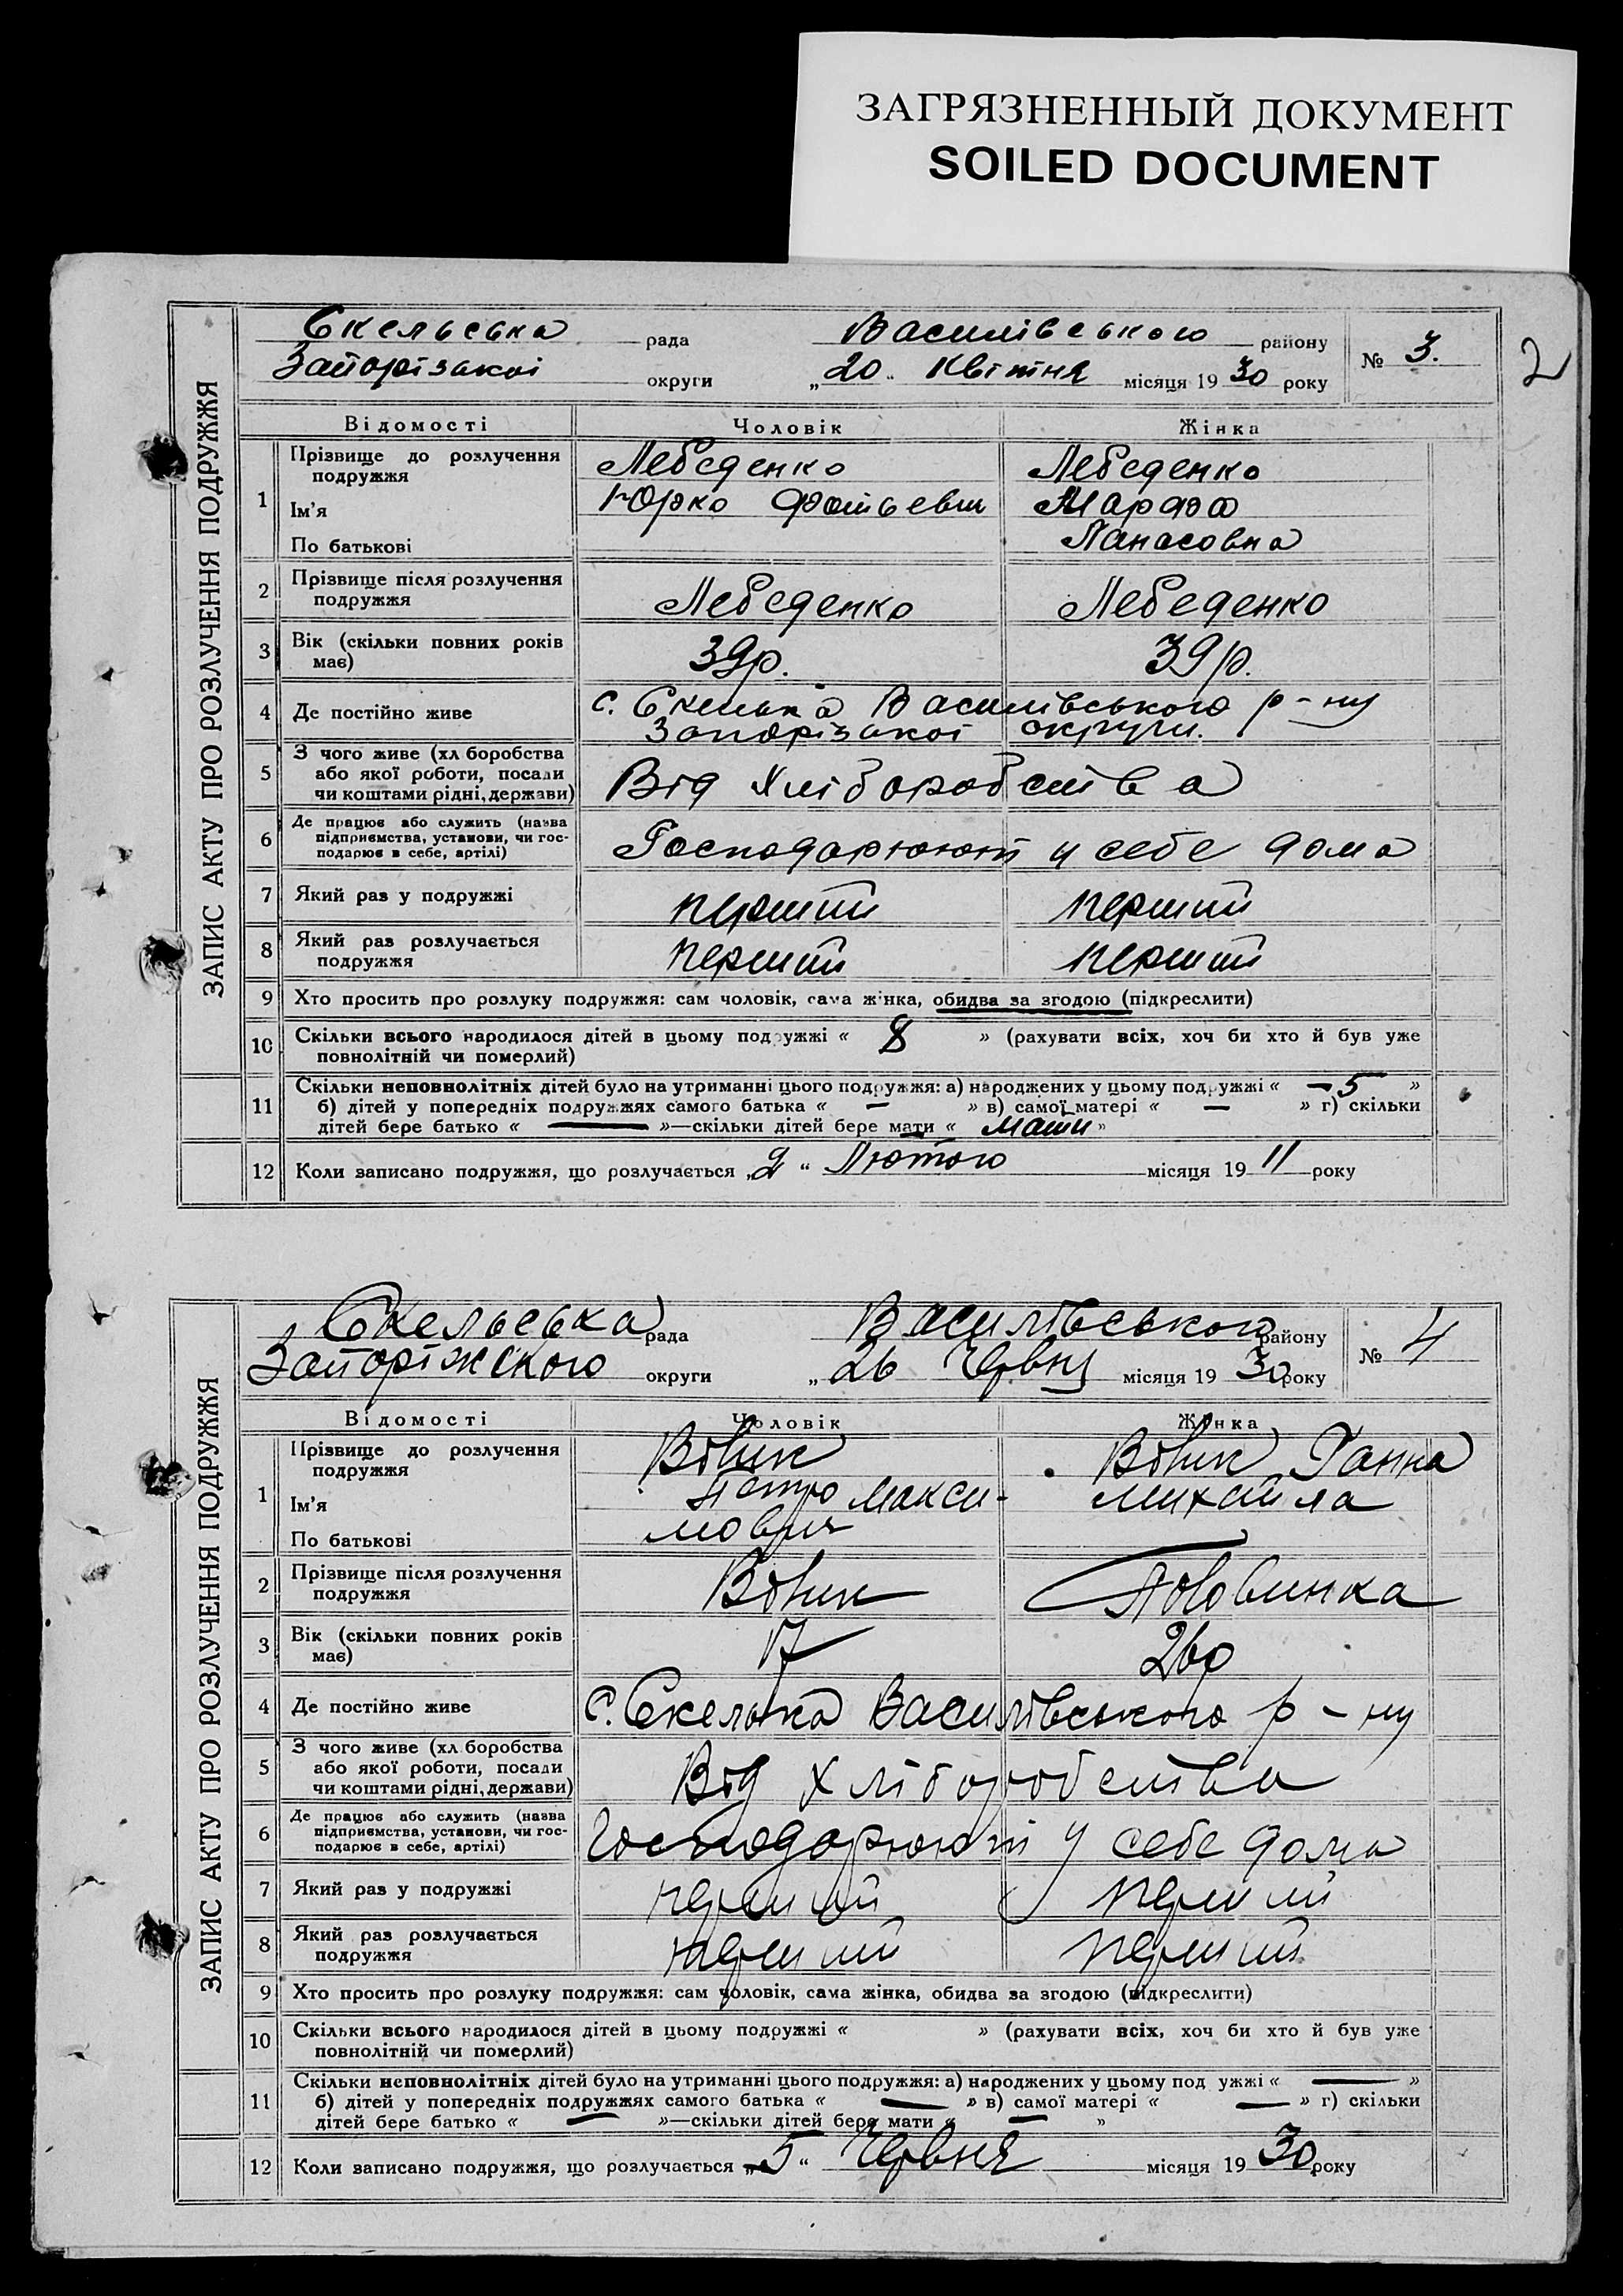 ЗАГРЯЗНЕННЫЙ ДОКУМЕНТ
SOILED DOCUMENT
2
ЗАПИС АКТУ ПРО РОЗЛУЧЕННЯ ПОДРУЖЖЯ
Скельська рада Василівського району № 3.
Запорізької округи „20“ Квітня місяця 1930 року
Відомості Чоловік Жінка
1 Прізвище до розлучення подружжя Лебеденко Лебеденко
Ім'я Юрко Фотьевич Марфа
По батькові Панасовна
2 Прізвище після розлучення подружжя Лебеденко Лебеденко
3 Вік (скільки повних років має) 39р. 39р.
4 Де постійно живе с. Скелька Василівського р-ну
Запорізької округи.
5 З чого живе (хл боробства
або якої роботи, посади
чи коштами рідні, держави) Від хліборобства
6 Де працює або служить (назва
підприємства, установи, чи гос-
подарює в себе, артілі) Господарюют у себе дома
7 Який раз у подружжі перший перший
8 Який раз розлучається подружжя перший перший
9 Хто просить про розлуку подружжя: сам чоловік, сама жінка, обидва за згодою (підкреслити)
10 Скільки всього народилося дітей в цьому подружжі « 8 » (рахувати всіх, хоч би хто й був уже
повнолітній чи померлий)
11 Скільки неповнолітніх дітей було на утриманні цього подружжя: а) народжених у цьому подружжі « – 5 »
б) дітей у попередніх подружжях самого батька « – » в) самої матері « – » г) скільки
дітей бере батько « — »—скільки дітей бере мати « мати »
12 Коли записано подружжя, що розлучається „2“ Лютого місяця 1911 року
ЗАПИС АКТУ ПРО РОЗЛУЧЕННЯ ПОДРУЖЖЯ
Скельська рада Василівського району № 4
Запоріжского округи „26 Червня місяця 1930 року
Відомості Чоловік Жінка
1 Прізвище до розлучення подружжя Вовк Вовк Ганна
Ім'я Петро Макси- Михайла
По батькові мович
2 Прізвище після розлучення подружжя Вовк Половинка
3 Вік (скільки повних років має) 17 26р
4 Де постійно живе с. Скелька Василівського р-ну
5 З чого живе (хл боробства
або якої роботи, посади
чи коштами рідні, держави) Від хліборобства
6 Де працює або служить (назва
підприємства, установи, чи гос-
подарює в себе, артілі) Господарюют у себе дома
7 Який раз у подружжі перший перший
8 Який раз розлучається подружжя перший перший
9 Хто просить про розлуку подружжя: сам чоловік, сама жінка, обидва за згодою (підкреслити)
10 Скільки всього народилося дітей в цьому подружжі « » (рахувати всіх, хоч би хто й був уже
повнолітній чи померлий)
11 Скільки неповнолітніх дітей було на утриманні цього подружжя: а) народжених у цьому под ужжі « — »
б) дітей у попередніх подружжях самого батька « — » в) самої матері « — » г) скільки
дітей бере батько « — »—скільки дітей бере мати « — »
12 Коли записано подружжя, що розлучається „5“ Червня місяця 1930 року